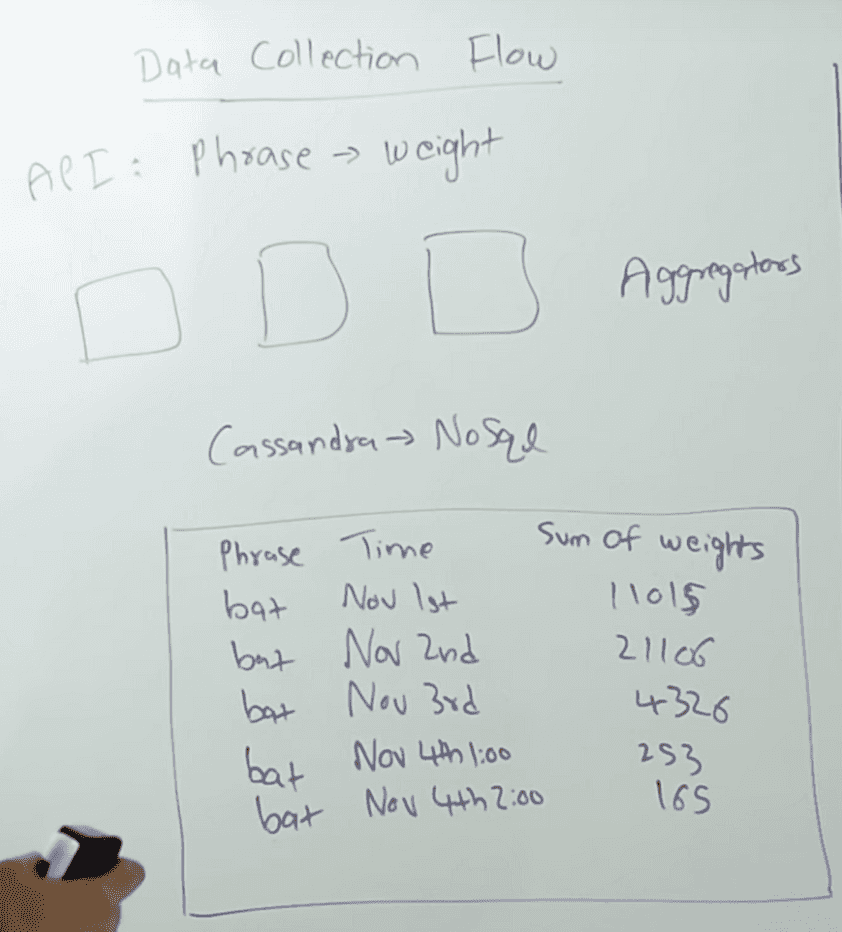 Data Collection Flow
API: Phrase → weight
Aggregators
Cassandra → NoSql
Phrase Time Sum of weights
bat Nov 1st 11015
bat Nov 2nd 21106
bat Nov 3rd 4326
bat Nov 4th 1:00 253
bat Nov 4th 2:00 165